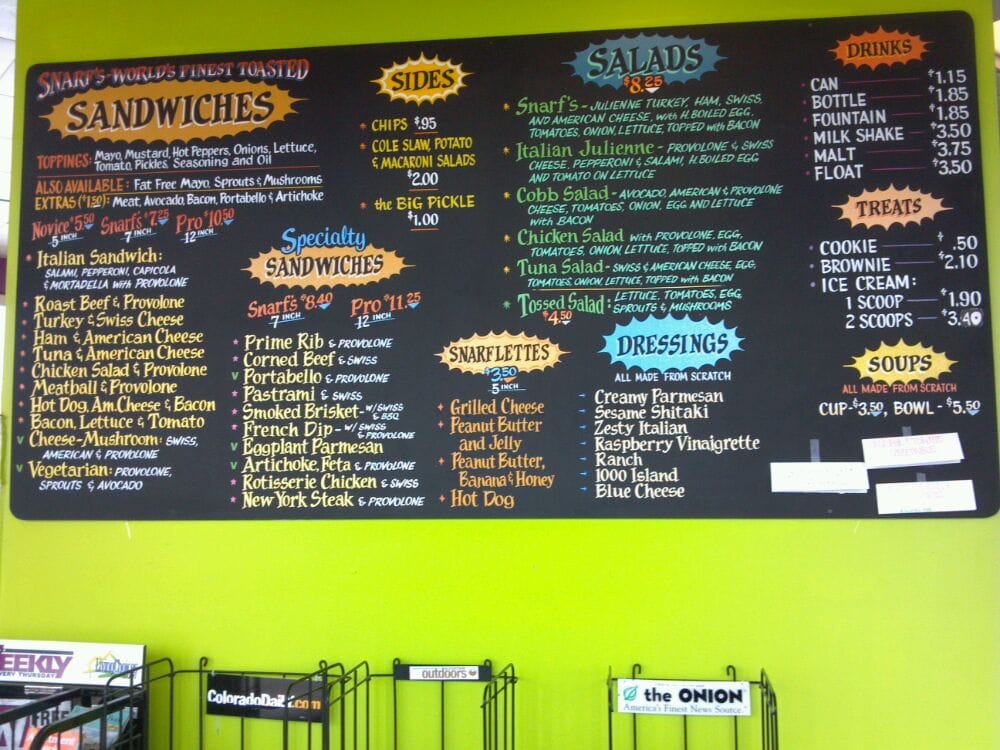 SNARF'S - WORLD'S FINEST TOASTED
SANDWICHES
TOPPINGS: Mayo, Mustard, Hot Peppers, Onions, Lettuce,
Tomato, Pickles, Seasoning and Oil
ALSO AVAILABLE: Fat Free Mayo, Sprouts & Mushrooms
EXTRAS ($1.50): Meat, Avocado, Bacon, Portabello & Artichoke
Novice $5.50 Snarf's $7.25 Pro $10.50
5 INCH 7 INCH 12 INCH
Italian Sandwich:
SALAMI, PEPPERONI, CAPICOLA
& MORTADELLA with PROVOLONE
Roast Beef & Provolone
Turkey & Swiss Cheese
Ham & American Cheese
Tuna & American Cheese
Chicken Salad & Provolone
Meatball & Provolone
Hot Dog, Am. Cheese & Bacon
Bacon, Lettuce & Tomato
V Cheese-Mushroom: SWISS,
AMERICAN & PROVOLONE
V Vegetarian: PROVOLONE,
SPROUTS & AVOCADO
Specialty
SANDWICHES
Snarf's $8.40 Pro $11.25
7 INCH 12 INCH
Prime Rib & PROVOLONE
Corned Beef & SWISS
V Portabello & PROVOLONE
Pastrami & SWISS
Smoked Brisket - W/SWISS
& BBQ
French Dip - W/SWISS
& PROVOLONE
V Eggplant Parmesan
V Artichoke, Feta & PROVOLONE
Rotisserie Chicken & SWISS
New York Steak & PROVOLONE
SIDES
CHIPS $.95
COLE SLAW, POTATO
& MACARONI SALADS
$2.00
the BIG PICKLE
$1.00
SNARFLETTES
$3.50
5 INCH
Grilled Cheese
Peanut Butter
and Jelly
Peanut Butter,
Banana & Honey
Hot Dog
SALADS
$8.25
Snarf's - JULIENNE TURKEY, HAM, SWISS,
AND AMERICAN CHEESE, with H.BOILED EGG,
TOMATOES, ONION, LETTUCE, TOPPED with BACON
Italian Julienne - PROVOLONE & SWISS
CHEESE, PEPPERONI & SALAMI, H.BOILED EGG
AND TOMATO ON LETTUCE
Cobb Salad - AVOCADO, AMERICAN & PROVOLONE
CHEESE, TOMATOES, ONION, EGG AND LETTUCE
with BACON
Chicken Salad with PROVOLONE, EGG,
TOMATOES, ONION, LETTUCE, TOPPED with BACON
Tuna Salad - SWISS & AMERICAN CHEESE, EGG,
TOMATOES, ONION, LETTUCE, TOPPED with BACON
Tossed Salad: LETTUCE, TOMATOES, EGG,
$4.50 SPROUTS & MUSHROOMS
DRESSINGS
ALL MADE FROM SCRATCH
Creamy Parmesan
Sesame Shitaki
Zesty Italian
Raspberry Vinaigrette
Ranch
1000 Island
Blue Cheese
DRINKS
CAN $1.15
BOTTLE 1.85
FOUNTAIN 1.85
MILK SHAKE $3.50
MALT $3.75
FLOAT $3.50
TREATS
COOKIE $.50
BROWNIE $2.10
ICE CREAM:
1 SCOOP $1.90
2 SCOOPS $3.40
SOUPS
ALL MADE FROM SCRATCH
CUP - $3.50, BOWL - $5.50
EEKLY
VERY THURSDAY
FRE
ColoradoDail .com
outdoors
the ONION
America's Finest News Source.